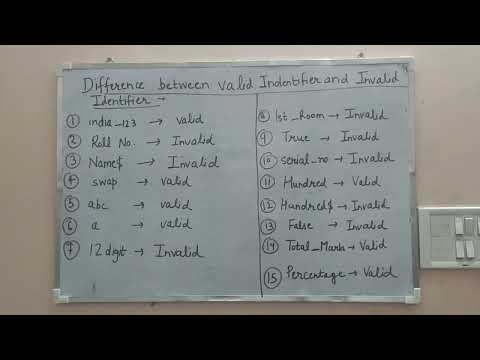 Difference between valid Indentifier and Invalid
Identifier →
① india_123 → valid
② Roll No. → Invalid
③ Name$ → Invalid
④ swap → valid
⑤ abc → valid
⑥ a → valid
⑦ 12 digit → Invalid
⑧ 1st_Room → Invalid
⑨ True → Invalid
⑩ serial_no → Invalid
⑪ Hundred → Valid
⑫ Hundred$ → Invalid
⑬ False → Invalid
⑭ Total_Marks → Valid
⑮ Percentage → Valid